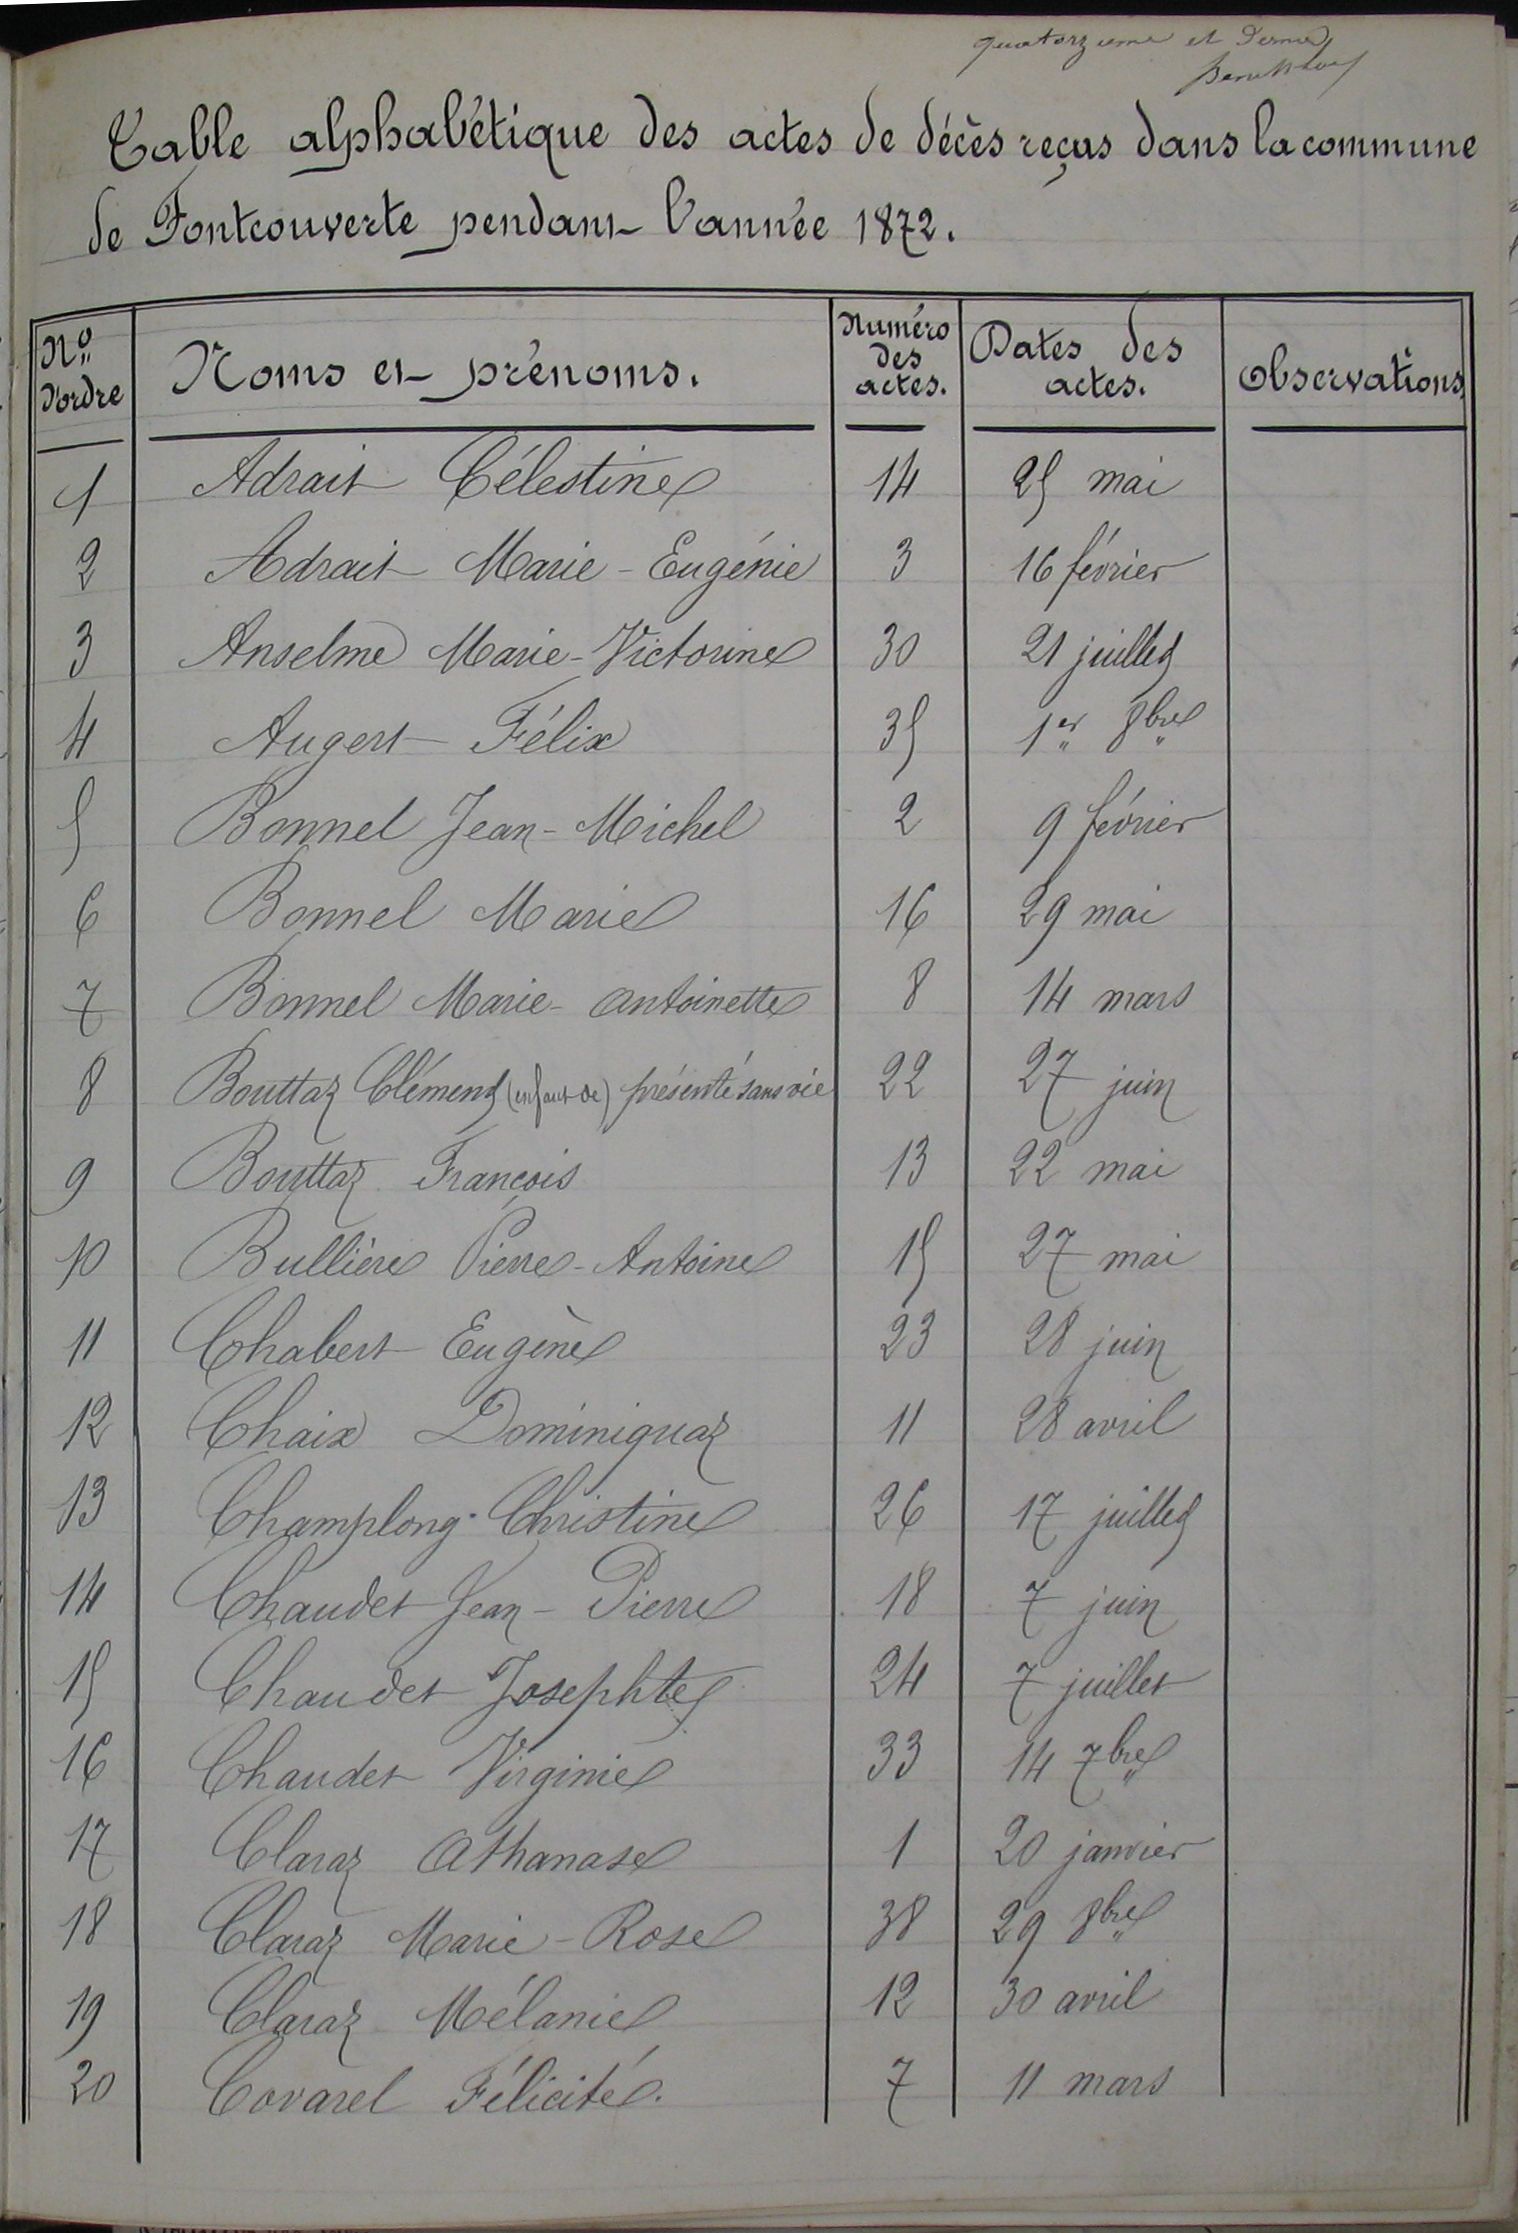 quatorzième et dernier
Table alphabétique des actes de décès reçus dans la commune
de Fontcouverte pendant l'année 1872.
Nº d'ordre Noms et prénoms. Numéro des actes. Dates des actes. Observations
1 Adrait Célestine 14 25 mai
2 Adrait Marie-Eugénie 3 16 février
3 Anselme Marie-Victorine 30 21 juillet
4 Augert Félix 35 1er 8bre
5 Bonnel Jean-Michel 2 9 février
6 Bonnel Marie 16 29 mai
7 Bonnel Marie-Antoinette 8 14 mars
8 Bouttaz Clément (enfant de) présenté sans vie 22 27 juin
9 Bouttaz François 13 22 mai
10 Bullière Pierre-Antoine 15 27 mai
11 Chabert Eugène 23 28 juin
12 Chaix Dominiquaz 11 28 avril
13 Champlong Christine 26 17 juillet
14 Chaudet Jean-Pierre 18 7 juin
15 Chaudet Josephte 24 7 juillet
16 Chaudet Virginie 33 14 7bre
17 Claraz Athanase 1 20 janvier
18 Claraz Marie-Rose 38 29 8bre
19 Claraz Mélanie 12 30 avril
20 Covarel Félicité. 7 11 mars